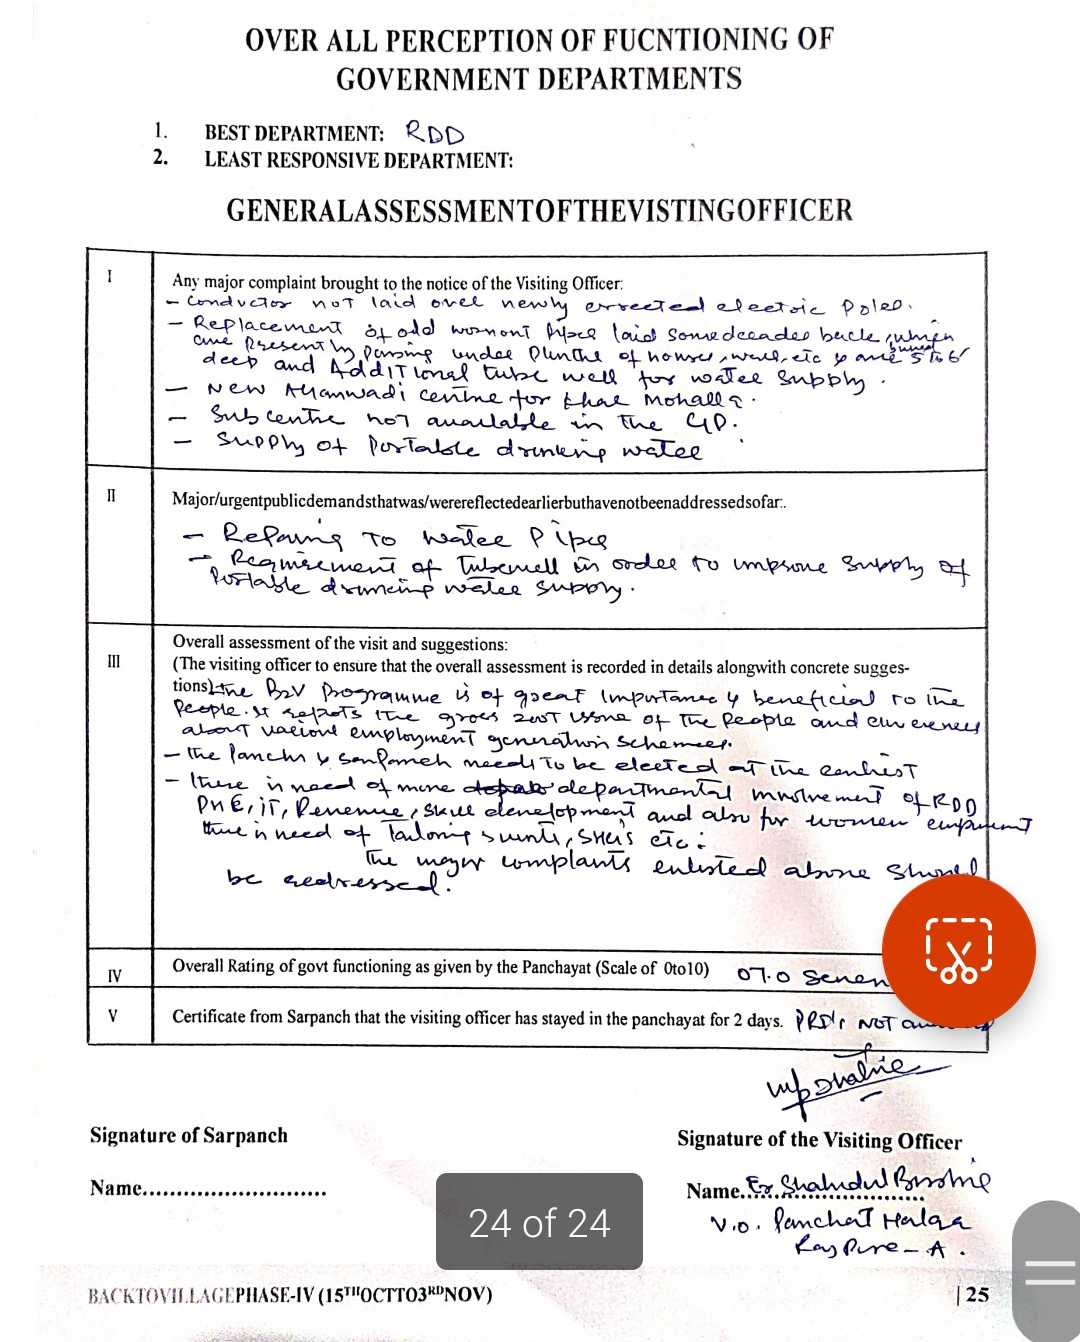 OVER ALL PERCEPTION OF FUCNTIONING OF
GOVERNMENT DEPARTMENTS
1. BEST DEPARTMENT: RDD
2. LEAST RESPONSIVE DEPARTMENT:
GENERALASSESSMENTOFTHEVISTINGOFFICER
I Any major complaint brought to the notice of the Visiting Officer:
- Conductor not laid over newly errected electric Poles.
- Replacement of old wornout Pipes laid some decades back, which
are presently passing under Plinths of houses, wall, etc & are buried 5 to 6'
deep and Additional tube well for water supply.
- New Anganwadi centre for Mohalla.
- Subcentre not available in the GP.
- Supply of Portable drinking water
II Major/urgentpublicdemandsthatwas/werereflectedearlierbuthavenotbeenaddressedsofar:.
- Repairing to water Pipes
- Requirement of Tubewell in order to improve Supply of
Portable drinking water supply.
III Overall assessment of the visit and suggestions:
(The visiting officer to ensure that the overall assessment is recorded in details alongwith concrete sugges-
tions) The B2V Programme is of great Importance & beneficial to the
People. It the gross root issue of the People and
about various employment generation schemes.
- The Panchs & Sarpanch needs to be elected at the earliest
- There is need of more departmental involvement of RDD
PHE, IT, Revenue, Skill development and also for women
there is need of Tailoring, SHG's etc.
The major complants enlisted above should
be redressed.
IV Overall Rating of govt functioning as given by the Panchayat (Scale of 0to10) 07.0 Seven
V Certificate from Sarpanch that the visiting officer has stayed in the panchayat for 2 days. PRI's NOT
Signature of Sarpanch
Signature of the Visiting Officer
Name...........................
Name. Er
V.O. Panchat Halqa
- A.
24 of 24
BACKTOVILLAGEPHASE-IV (15THOCTTO3RDNOV)
| 25